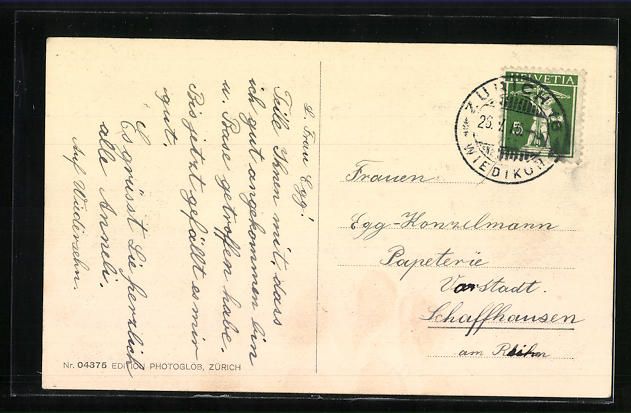 L. Frau Egg!
Teile Ihnen mit, dass
ich gut angekommen bin
u. Base getroffen habe.
Bis jetzt gefällt es mir
gut.
Es grüsst Sie herzlich
alle Anneli.
Auf Wiedersehn.
HELVETIA
ZÜRICH
WIEDIKON
5
Frauen
Egg-Honzelmann
Papeterie
Vorstadt.
Schaffhausen
am Rhein
Nr. 04375 EDITION PHOTOGLOB, ZÜRICH